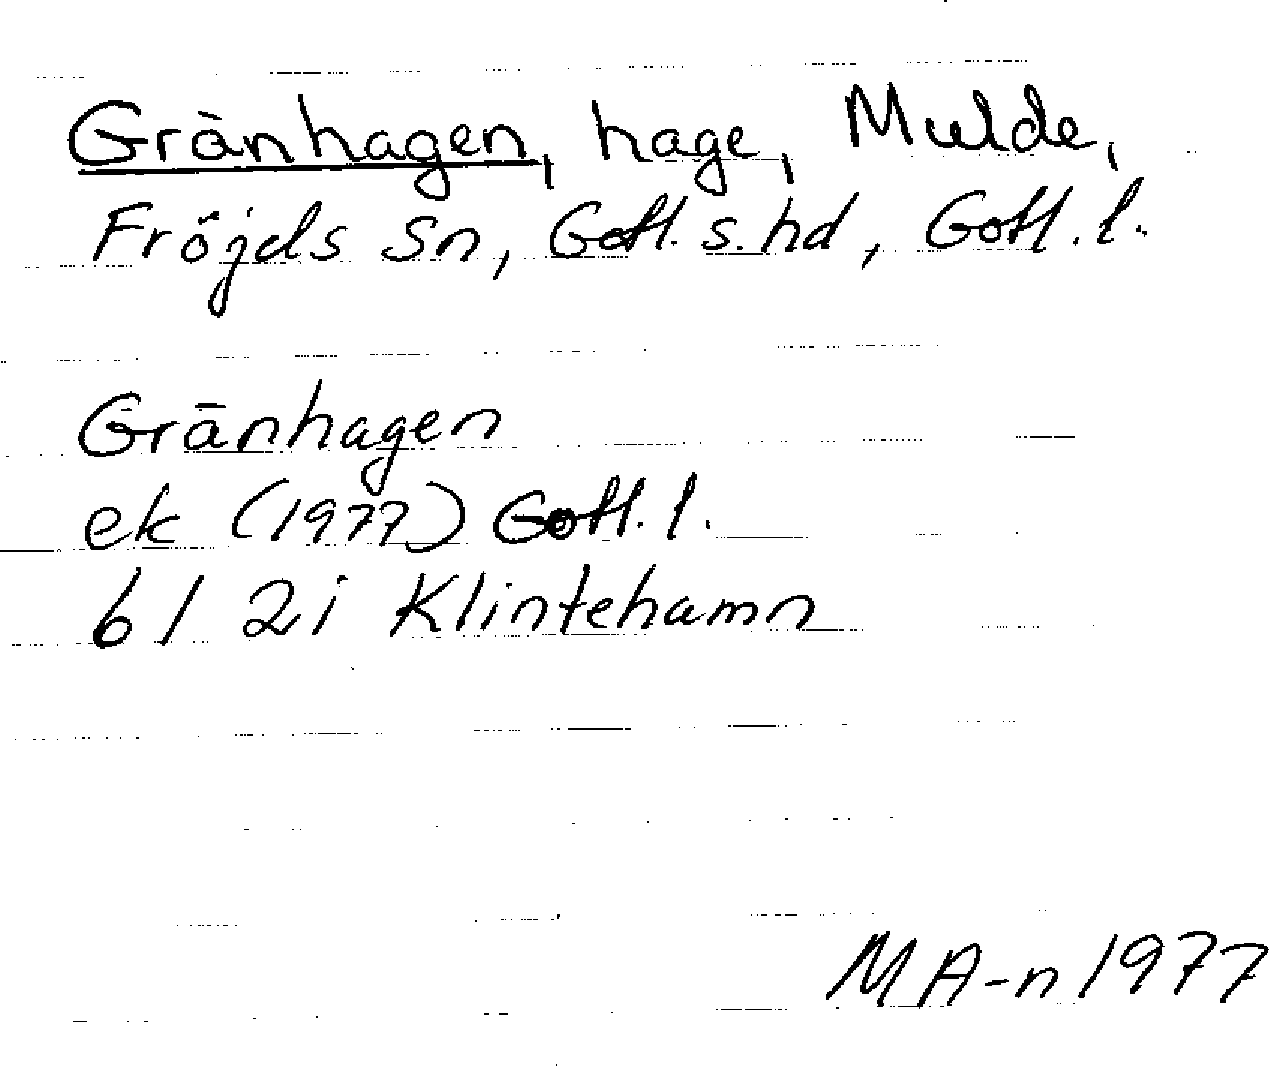 Gränhagen, hage, Mulde,
Fröjels sn, Gotl. s. hd, Gotl. l.
Gränhagen
ek (1977) Gotl. l.
6 I 2i Klintehamn
MA-n 1977